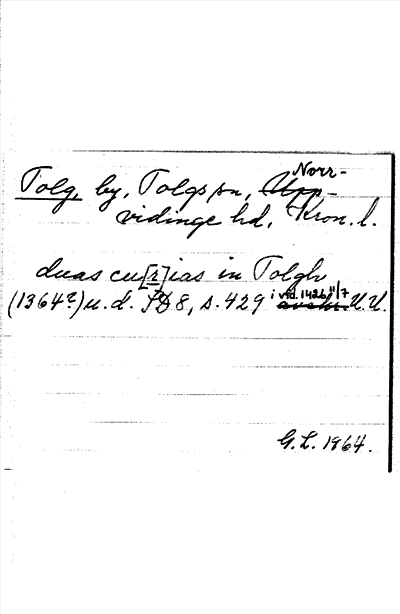 Tolg, by, Tolgs sn, Upp- Norr-
vidinge hd, Kron. l.
duas cu[r]ias in Tolgh
(1364?) u. d. SD 8, s. 429 i vid. 1426 11/7 avskr. U.U.
G. L. 1964.